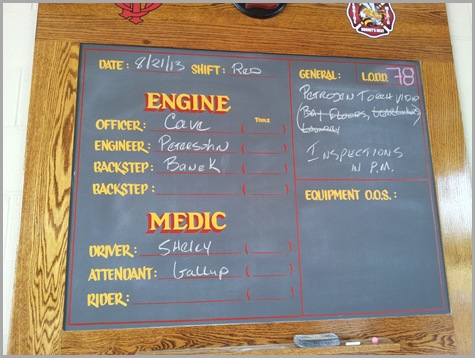 DATE: 8/21/13 SHIFT: RED
ENGINE
TOOLS
OFFICER: Cave ( )
ENGINEER: PETERSOHN ( )
BACKSTEP: BANEK ( )
BACKSTEP: ( )
MEDIC
DRIVER: SHELEY ( )
ATTENDANT: Gallup ( )
RIDER: ( )
GENERAL: L.O.D.D. 78
PETROGEN TORCH VIDEO
BAY FLOORS,
LAUNDRY
INSPECTIONS
IN P.M.
EQUIPMENT O.O.S.: